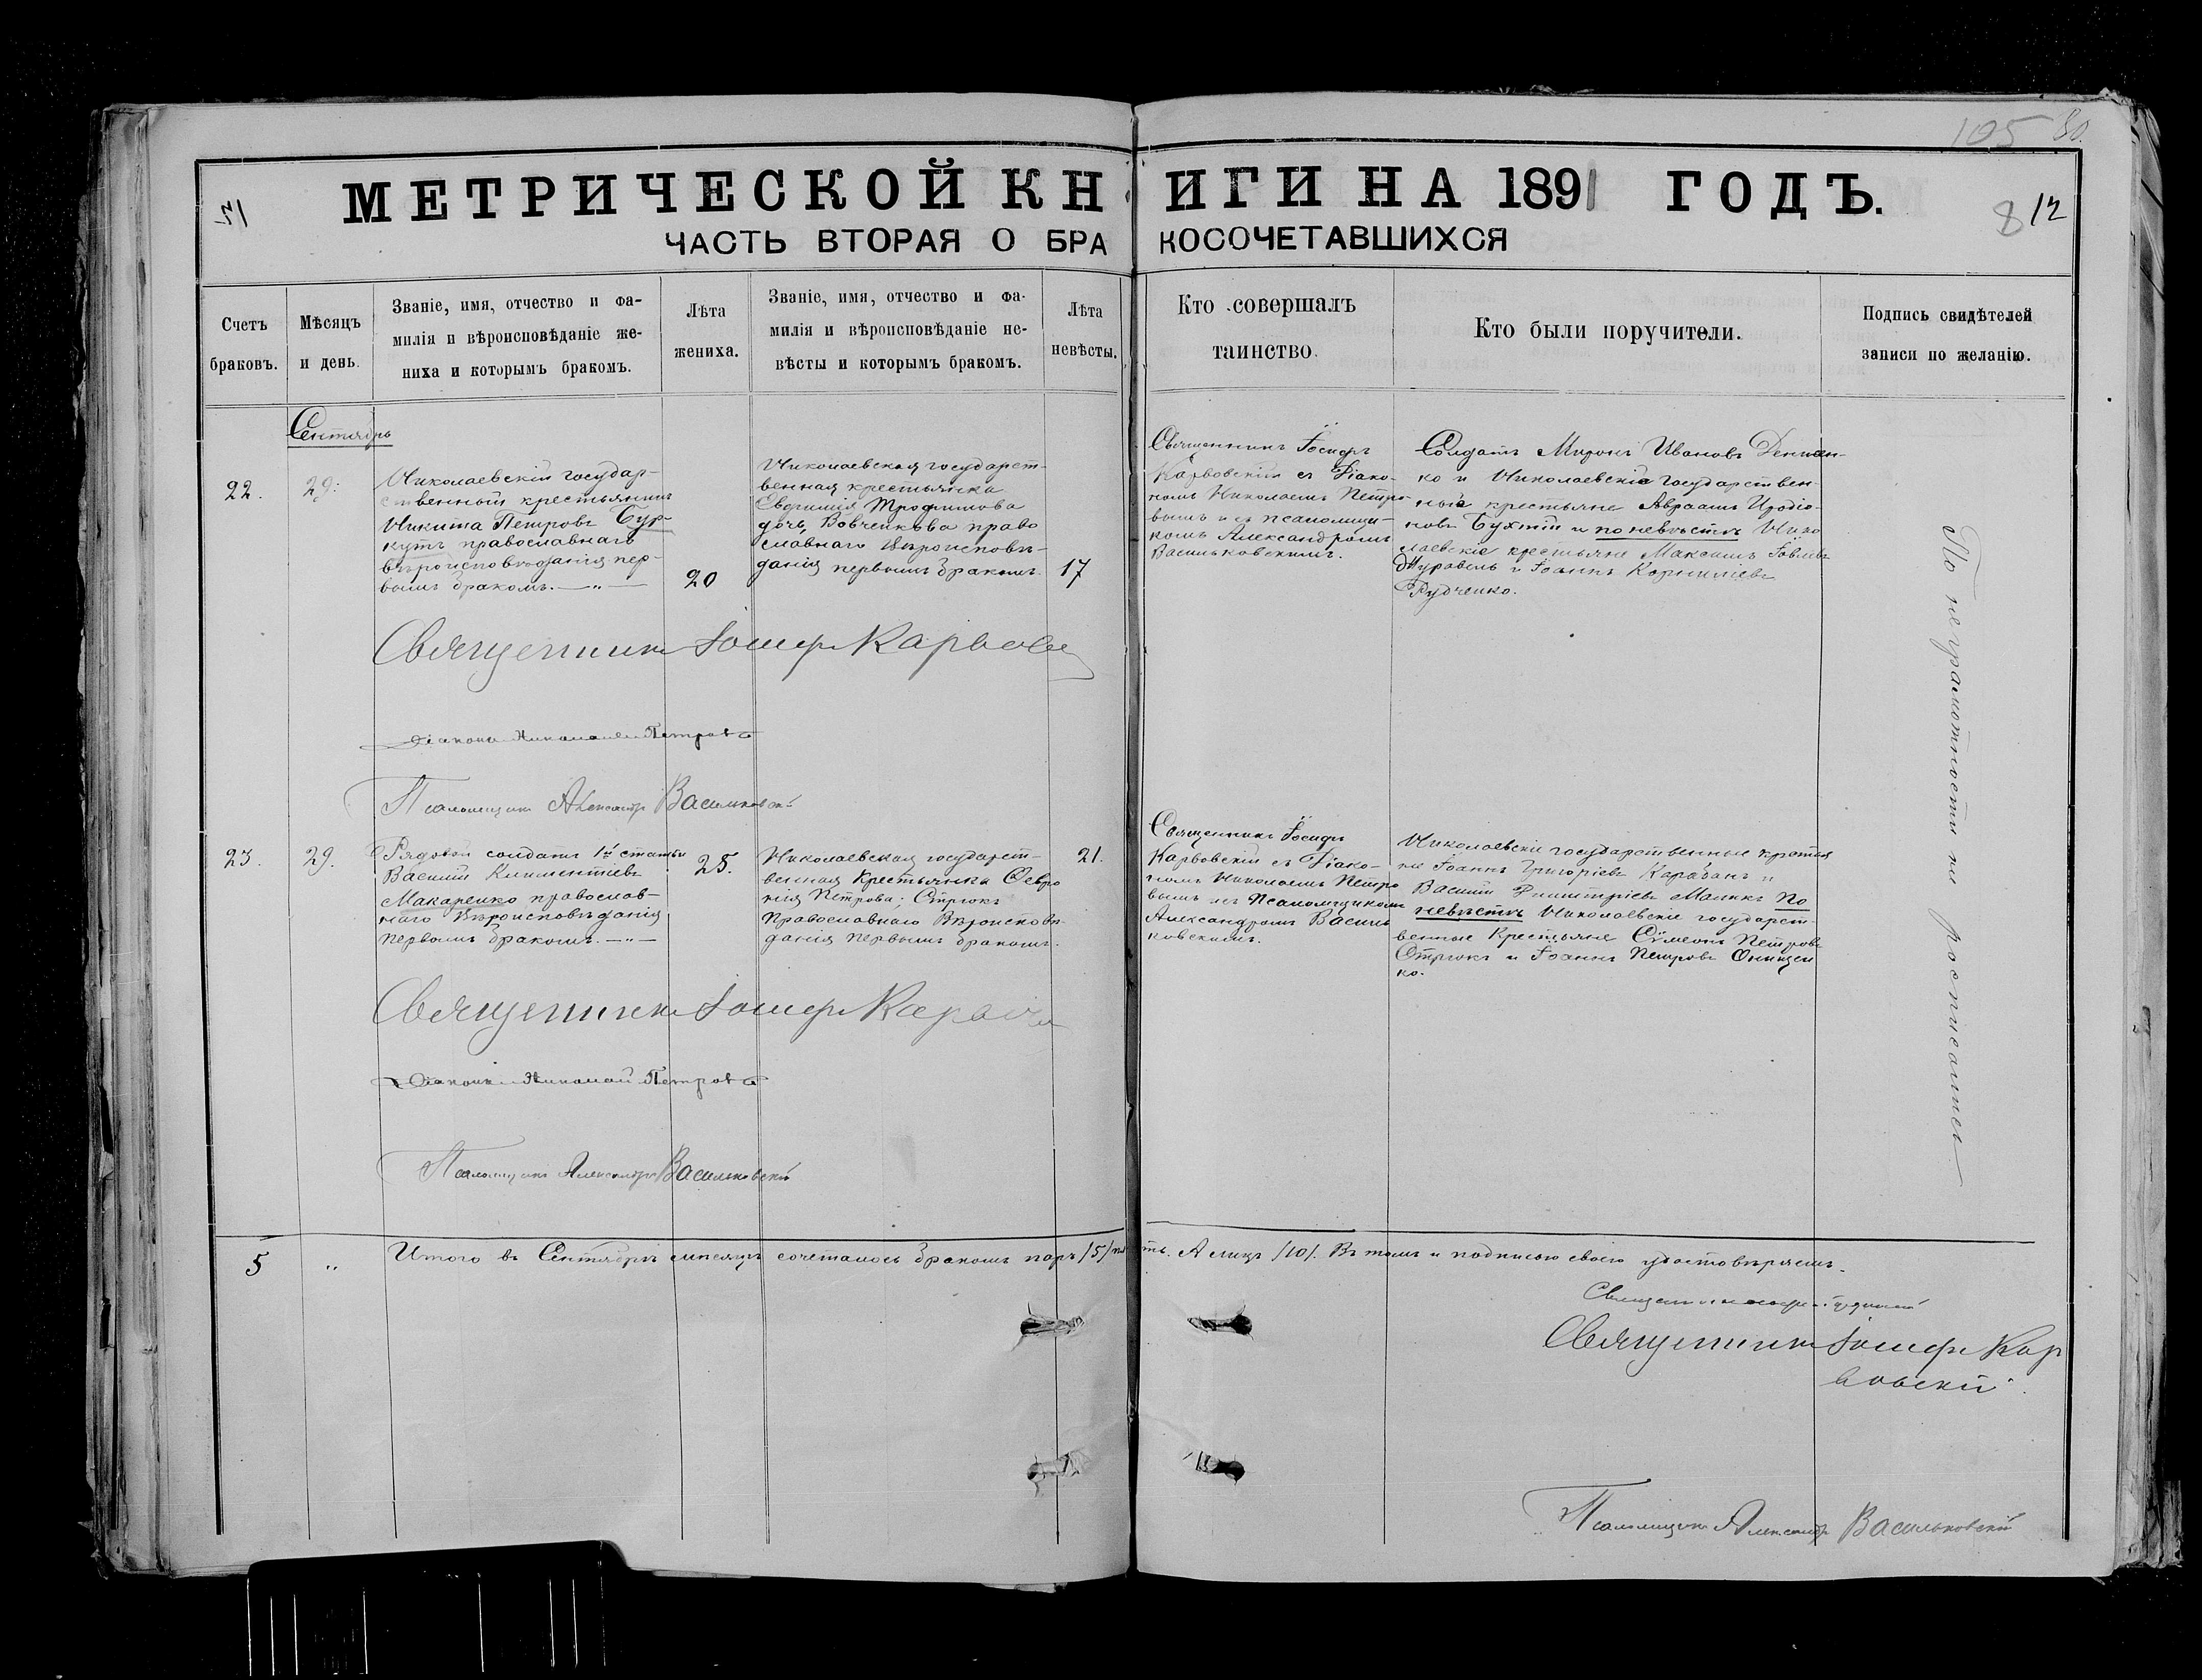 105 80.
МЕТРИЧЕСКОЙ КНИГИ НА 1891 ГОДЪ.
8 12
ЧАСТЬ ВТОРАЯ О БРАКОСОЧЕТАВШИХСЯ
Счетъ браковъ.
Мѣсяцъ и день.
Званіе, имя, отчество и фа-
милія и вѣроисповѣданіе же-
ниха и которымъ бракомъ.
Лѣта жениха.
Званіе, имя, отчество и фа-
милія и вѣроисповѣданіе не-
вѣсты и которымъ бракомъ.
Лѣта невѣсты.
Кто совершалъ таинство.
Кто были поручители.
Подпись свидѣтелей
записи по желанію.
Сентябрь
22.
29.
Николаевскій государ-
ственный крестьянинъ
Никита Петровъ Бур-
кутъ православнаго
вѣроисповѣданія пер-
вымъ бракомъ.
20
Николаевская государст-
венная крестьянка
Евфимія Трофимова
дочь Вовченкова право
славнаго вѣроисповѣ-
данія первымъ бракомъ.
17
Священникъ Іосифъ
Карвовскій съ Діако-
номъ Николаемъ Петро-
вымъ и съ псаломщи-
комъ Александромъ
Васильковскимъ.
Солдатъ Миронъ Ивановъ
ко и Николаевскіе государствен-
ные крестьяне Авраамъ Иродіо-
новъ Бухтій и по невѣстѣ Нико
лаевскіе крестьяне Максимъ
Журавель и Іоаннъ Корниліевъ
Рудченко.
Священникъ Іосифъ Карвовскій
Діаконъ Николай Петровъ
Псаломщикъ Александръ Васильковскій
23.
29.
Рядовой солдатъ 1й статьи
Василій Климентіевъ
Макаренко православ-
наго вѣроисповѣданія
первымъ бракомъ.
25.
Николаевская государст-
венная крестьянка Февро
нія Петрова Стрюкъ
православнаго вѣроисповѣ-
данія первымъ бракомъ.
21.
Священникъ Іосифъ
Карвовскій съ Діако-
номъ Николаемъ Петро
вымъ и съ псаломщикомъ
Александромъ Василь
ковскимъ.
Николаевскіе государственные крестья
не Іоаннъ Григоріевъ Карабанъ и
Василій Димитріевъ Маликъ по
невѣстѣ Николаевскіе государст-
венные крестьяне Сѵмеонъ Петровъ
Стрюкъ и Іоаннъ Петровъ Онищен
ко.
По неграмотности не росписались
Священникъ Іосифъ Карвовскій
Діаконъ Николай Петровъ
Псаломщикъ Александръ Васильковскій
5 „ Итого въ Сентябрѣ мѣсяцѣ сочеталось бракомъ паръ /5/ пять. А лицъ /10/. Въ томъ и подписью своею удостовѣряемъ.
Священникъ Іосифъ Кар
вовскій.
Псаломщикъ Александръ Васильковскій